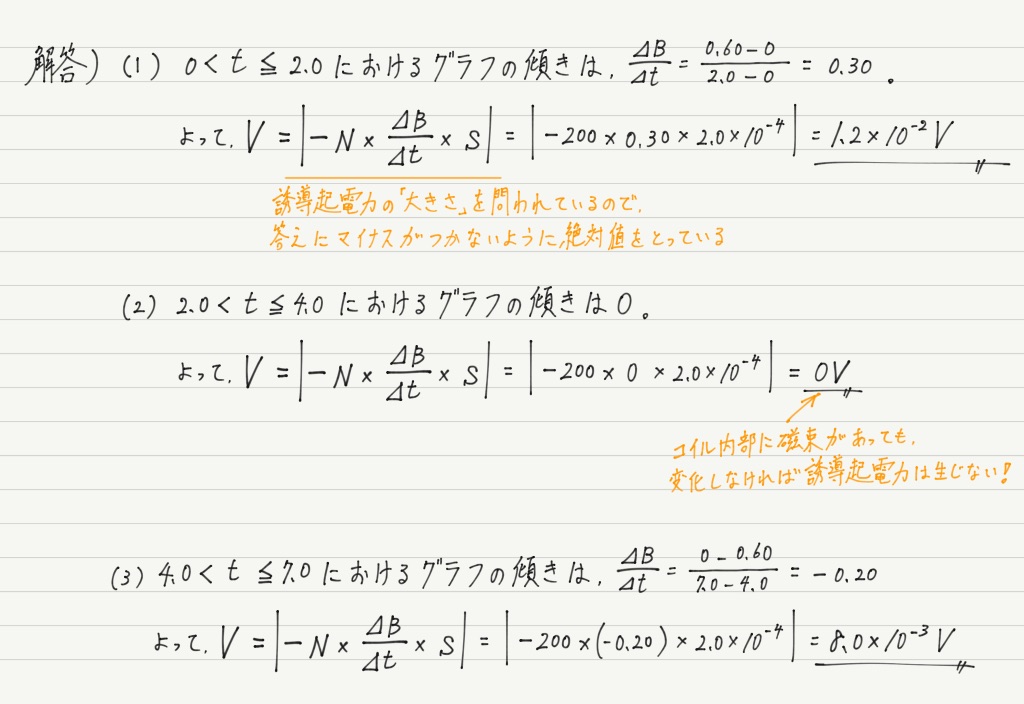 解答) (1) 0 < t ≦ 2.0 におけるグラフの傾きは, ΔB/Δt = (0.60-0)/(2.0-0) = 0.30 。
よって, V = |-N × ΔB/Δt × S| = |-200 × 0.30 × 2.0×10⁻⁴| = 1.2×10⁻² V
誘導起電力の「大きさ」を問われているので,
答えにマイナスがつかないように, 絶対値をとっている
(2) 2.0 < t ≦ 4.0 におけるグラフの傾きは 0 。
よって, V = |-N × ΔB/Δt × S| = |-200 × 0 × 2.0×10⁻⁴| = 0V
コイル内部に磁束があっても,
変化しなければ誘導起電力は生じない!
(3) 4.0 < t ≦ 7.0 におけるグラフの傾きは, ΔB/Δt = (0-0.60)/(7.0-4.0) = -0.20
よって, V = |-N × ΔB/Δt × S| = |-200 ×(-0.20) × 2.0×10⁻⁴| = 8.0×10⁻³ V